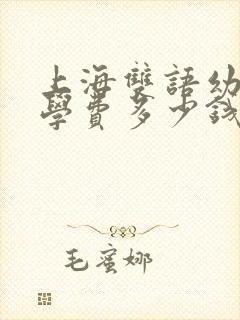 上海雙語幼
學費多少錢
毛蜜娜